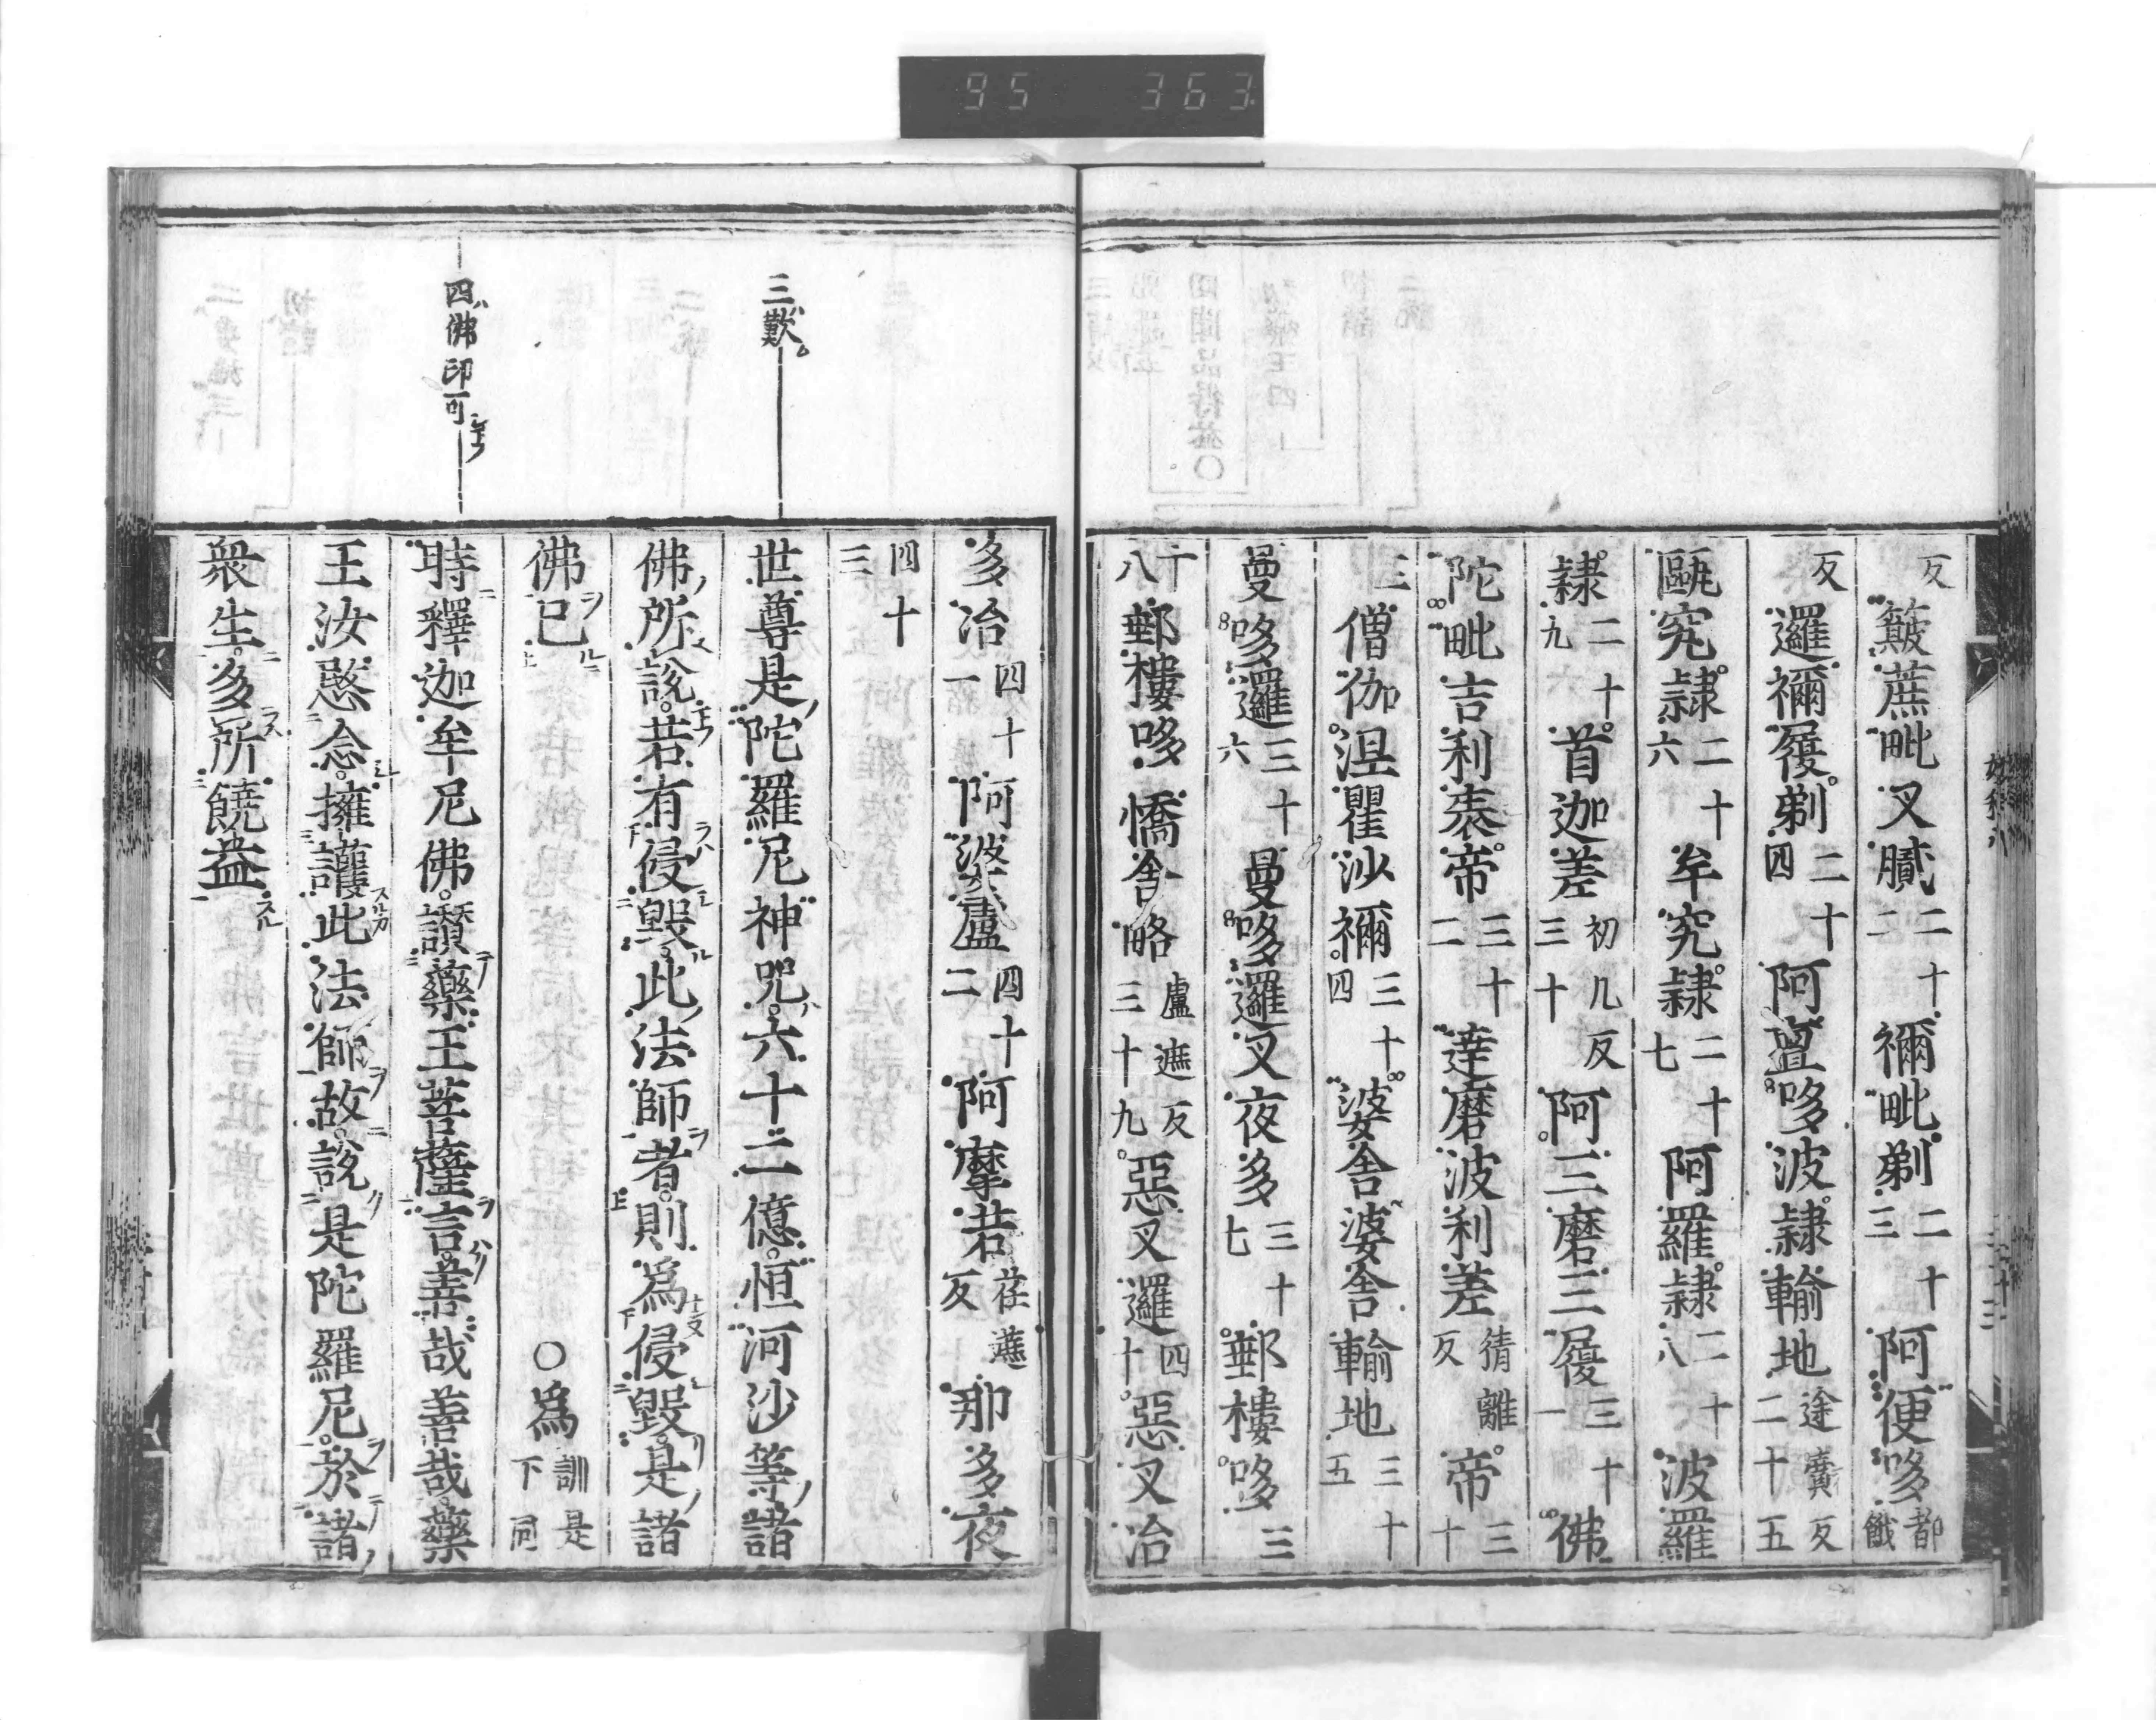 95 363
反簸蔗毗叉膩二十二禰毗剃二十三阿便哆都餓
反邏禰履剃二十四阿亶哆波隷輸地途賣反二十五
漚究隷二十六牟究隷二十七阿羅隷二十八波羅
隷二十九首迦差初几反三十阿三磨三履三十一佛
陀毗吉利袠帝三十二達磨波利差猜離反帝三十
三僧伽涅瞿沙禰三十四婆舍婆舍輸地三十五
曼哆邏三十六曼哆邏叉夜多三十七郵樓哆三
十八郵樓哆憍舍略盧遮反三十九惡叉邏四十惡叉冶
多冶四十一阿婆盧四十二阿摩若荏蔗反那多夜
四十三
三歎
世尊是陀羅尼神咒六十二億恒河沙等諸
佛所說若有侵毀此法師者則爲侵毀是諸
佛已〇爲訓是下同
四佛印可
時釋迦牟尼佛讚藥王菩薩言善哉善哉藥
王汝愍念擁護此法師故說是陀羅尼於諸
衆生多所饒益